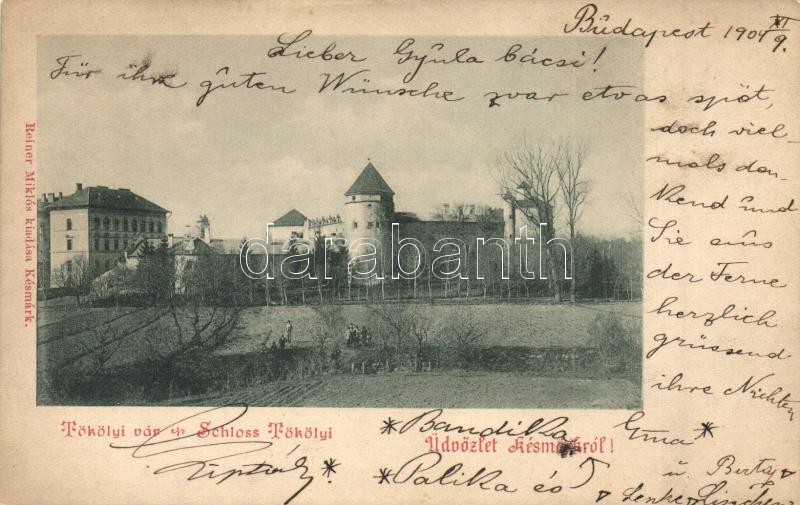 Budapest 1904 XI/9.
Lieber Gyula bácsi!
Für ihre guten Wünsche zwar etwas spöt,
doch viel-
mals dan-
kend und
Sie aus
der Ferne
herzlich
grüssend
ihre Nichten
Reiner Miklós kiadása Késmárk.
darabanth
Tökölyi vár Schloss Tökölyi
Üdvözlet Késmárkról!
* Bandika Irma *
* Palika és
u. Berta
Lenke